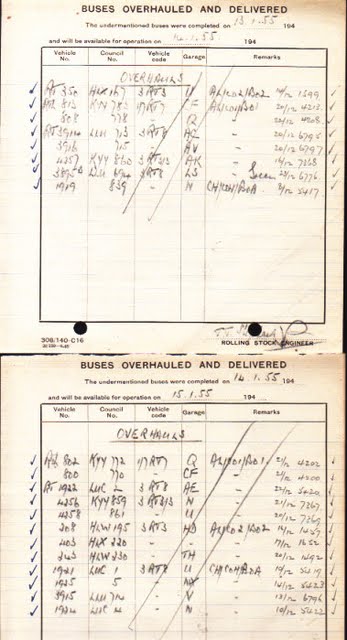 BUSES OVERHAULED AND DELIVERED
The undermentioned buses were completed on 13.1.55 194
and will be available for operation on 14.1.55 194
Vehicle No. Council No. Vehicle code Garage Remarks
OVERHAULS
RT 350 HLX 167 3RT3 U AL/CO2/BO2 14/12 1599
813 KYY 783 7RT7 F 20/12 4213
808 778 - Q - 20/12 4208
RT 3914 LUU 713 3RT8 AC - 20/12 6795
3916 715 - AV - 20/12 6797
4257 KYY 860 3RT3/3 AK - 14/12 7268
3895 LUU 694 3RT8 LS 6776
1919 839 - N 5417
308/140-C16
ROLLING STOCK ENGINEER
BUSES OVERHAULED AND DELIVERED
The undermentioned buses were completed on 14.1.55 194
and will be available for operation on 15.1.55 194
Vehicle No. Council No. Vehicle code Garage Remarks
OVERHAULS
802 KYY 772 7RT7 Q 4202
800 770 - CF - 4200
RT 1922 LUC 2 3RT8 AE - 5420
4256 KYY 859 3RT3/3 N - 7267
4258 861 - U -
208 HLW 195 3RT3 HD AL/CO2/BO2
403 HLX 220 - - - 17/12 1652
243 HLW 230 - TH - 20/12 1492
1921 LUC 1 3RT8 U 5419
1925 5 - - 5423
3915 LUU 714 - V - 6796
1924 LUC 4 - N - 5422